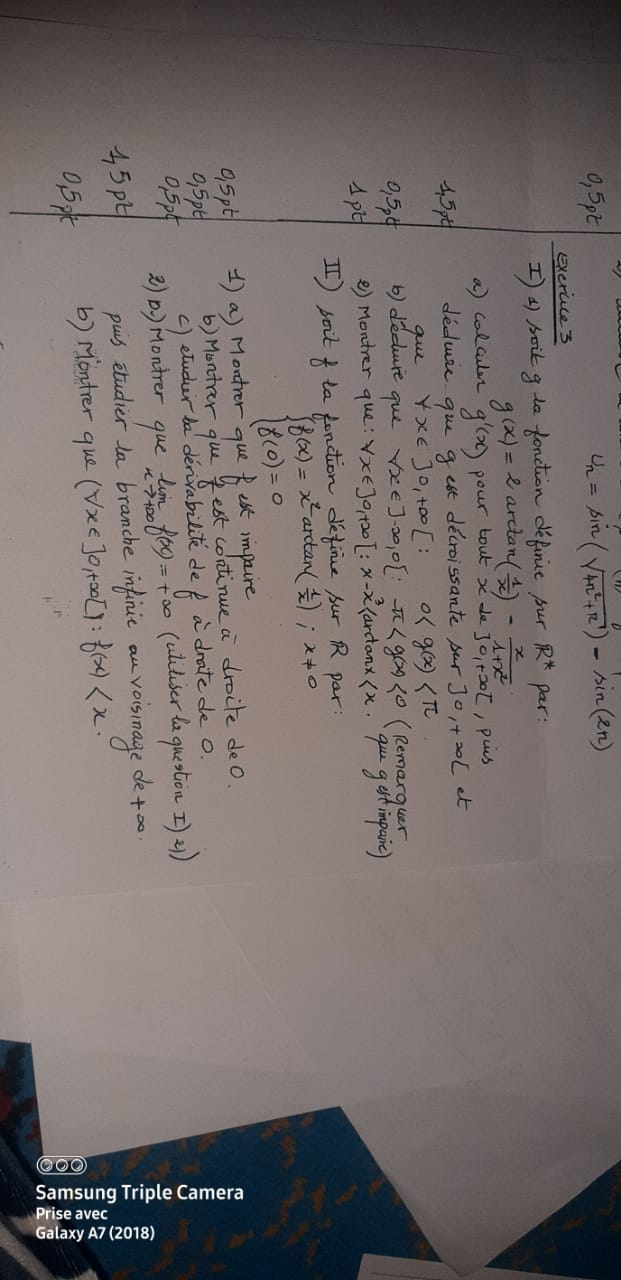 0,5pt Un = sin(√4n²+n) - sin(2n)
Exercice 3
I) 1) soit g la fonction définie sur ℝ* par:
g(x) = 2 arctan(1/x) - x/1+x²
a) calculer g'(x) pour tout x de ]0,+∞[, puis
1,5pt déduire que g est décroissante sur ]0,+∞[ et
que ∀x∈]0,+∞[: 0< g(x) <π
0,5pt b) déduire que ∀x∈]-∞,0[: -π<g(x)<0 (Remarquer
que g est impaire)
1pt 2) Montrer que: ∀x∈]0,+∞[: x-x³<arctanx<x.
II) soit f la fonction définie sur ℝ par:
f(x) = x² arctan(1/x) ; x≠0
f(0) = 0
0,5pt 1) a) Montrer que f est impaire
0,5pt b) Montrer que f est continue à droite de 0.
0,5pt c) etudier la dérivabilité de f à droite de 0.
2) a) Montrer que lim x→+∞ f(x) = +∞ (utiliser la question I) 2))
1,5pt puis étudier la branche infinie au voisinage de +∞.
0,5pt b) Montrer que (∀x∈]0,+∞[): f(x) < x.
Samsung Triple Camera
Prise avec
Galaxy A7 (2018)